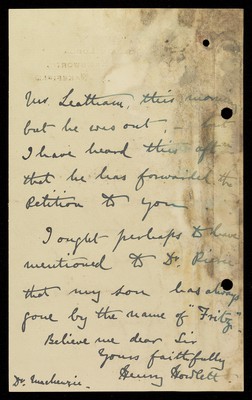 Mr. Leatham, this morn
but he was out, — but
I have heard this aft
that he has forwarded th
Petition to you.
I ought perhaps to have
mentioned to Dr.
that my son has always
gone by the name of "Fritz".
Believe me dear Sir
Yours faithfully
Henry Howlett
Dr. Mackenzie.